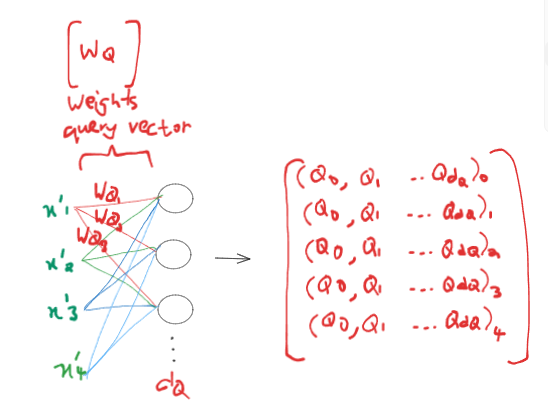 [WQ]
weights
query vector
x'1
WQ1
WQ2
WQ3
x'2
x'3
x'4
dQ
(Q0, Q1 ... QdQ)0
(Q0, Q1 ... QdQ)1
(Q0, Q1 ... QdQ)2
(Q0, Q1 ... QdQ)3
(Q0, Q1 ... QdQ)4